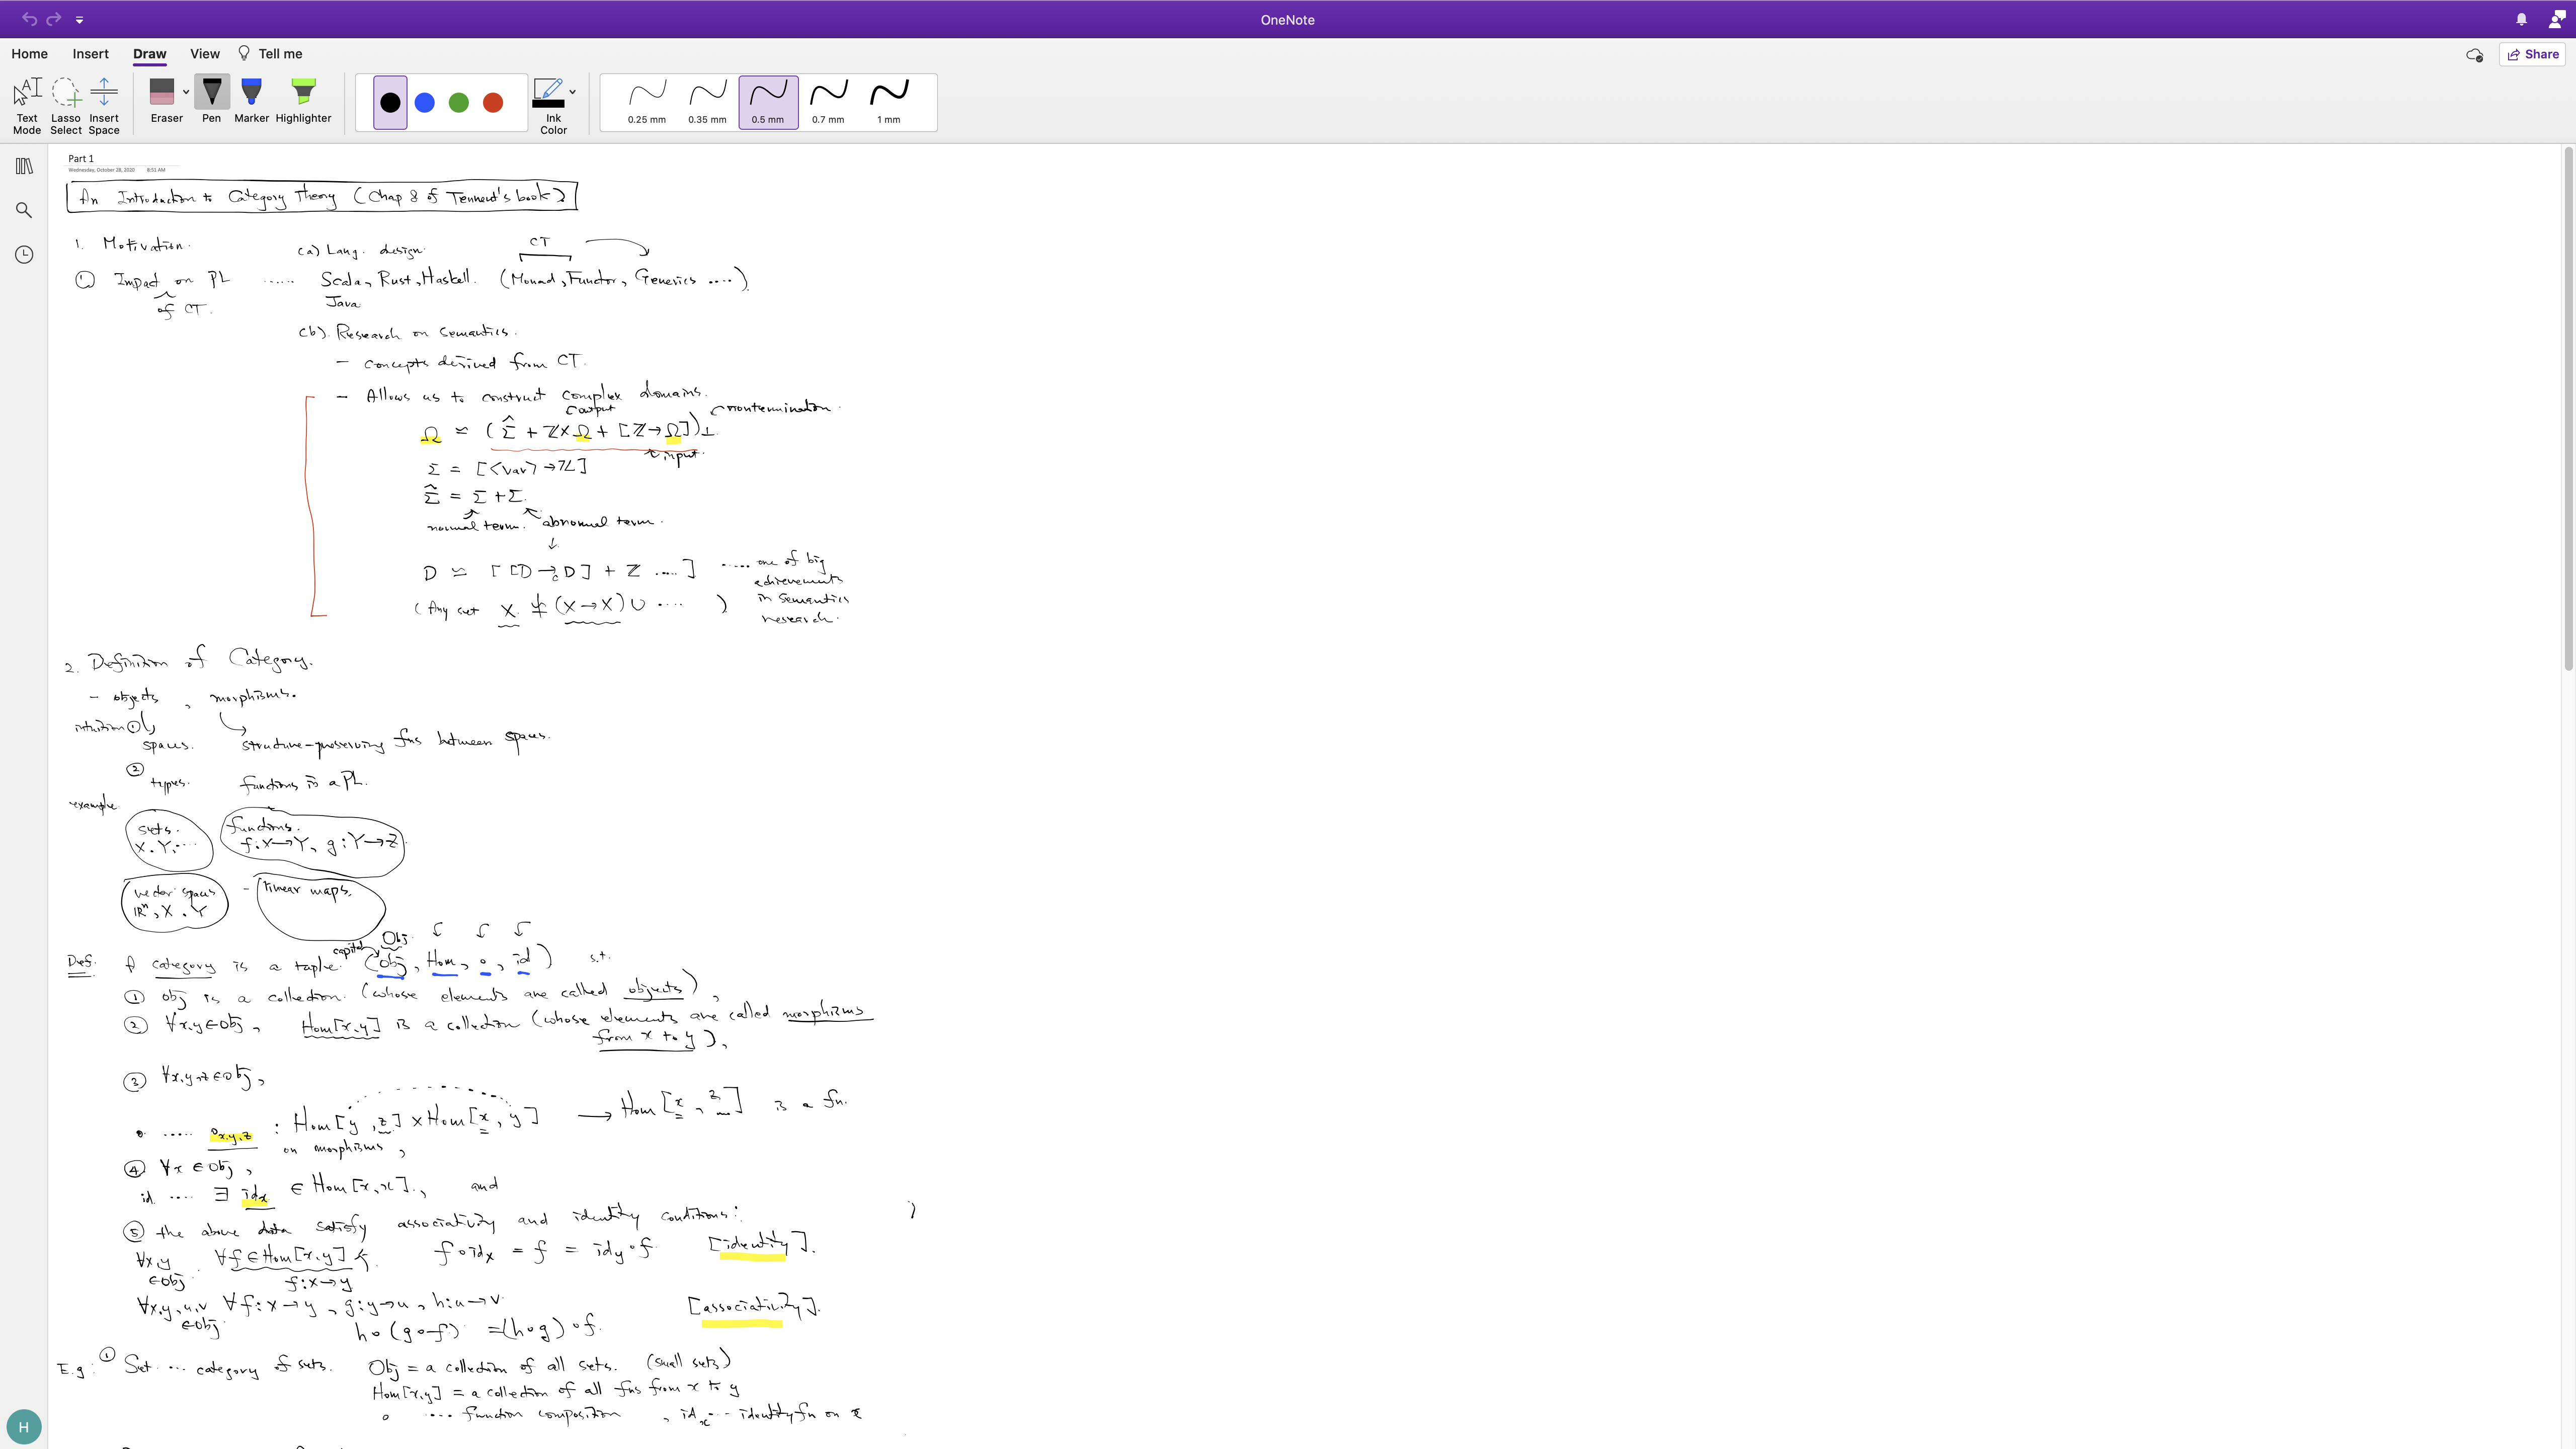 OneNote
Home Insert Draw View Tell me
Share
Text Mode
Lasso Select
Insert Space
Eraser
Pen
Marker
Highlighter
Ink Color
0.25 mm
0.35 mm
0.5 mm
0.7 mm
1 mm
Part 1
Wednesday, October 28, 2020 8:51 AM
An Introduction to Category Theory (Chap 8 of Tennent's book)
1. Motivation.
(a) Lang. design.
CT
① Impact on PL ...... Scala, Rust, Haskell. (Monad, Functor, Generics ....)
of CT.
Java
(b). Research on semantics.
- concepts derived from CT.
- Allows us to construct complex domains.
output
nontermination.
Ω ≃ (Σ̂ + ℤ×Ω + [ℤ→Ω])⊥
input.
Σ = [<var> → ℤ]
Σ̂ = Σ + Σ.
normal term. abnormal term.
D ≃ [[D →c D] + ℤ .....] ..... one of big
achievements
(Any set X ≄ (X → X) ∪ .... ) in semantics
research.
2. Definition of Category.
- objects , morphisms.
intuition ①
spaces. structure-preserving fns between spaces.
②
types. functions is a PL.
example.
sets. functions.
X, Y, ... f: X→Y, g: Y→Z
vector spaces - linear maps.
ℝⁿ, X, Y
Obj
capital
Def. A category is a tuple (Obj, Hom, ∘, id) s.t.
① obj is a collection (whose elements are called objects),
② ∀x,y∈obj, Hom[x,y] is a collection (whose elements are called morphisms
from x to y),
③ ∀x,y,z∈obj,
∘ .... ∘x,y,z : Hom[y,z] × Hom[x,y] → Hom[x,z] is a fn.
on morphisms,
④ ∀x ∈ obj,
id .... ∃ idx ∈ Hom[x,x]., and
⑤ the above data satisfy associativity and identity conditions:
∀x,y ∈obj. ∀f∈Hom[x,y] f∘idx = f = idy∘f. [identity].
f: x→y
∀x,y,u,v ∈obj ∀f: x→y, g: y→u, h: u→v [associativity].
h∘(g∘f) = (h∘g)∘f.
E.g: ① Set ... category of sets. Obj = a collection of all sets. (small sets)
Hom[x,y] = a collection of all fns from x to y
∘ ... function composition , idx ... identity fn on x
H